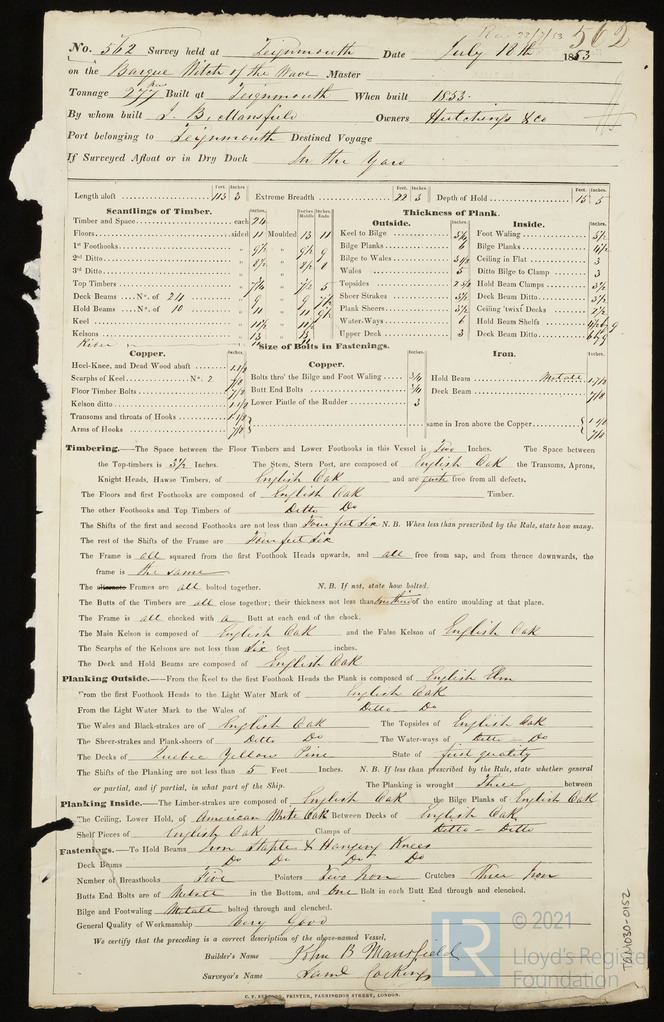 562
No. 562 Survey held at Teignmouth Date July 18th 1853
on the Barque Witch of the Wave Master
Tonnage 277 Built at Teignmouth When built 1853.
By whom built J. B. Mansfield Owners Hutchings & Co
Port belonging to Teignmouth Destined Voyage
If Surveyed Afloat or in Dry Dock In the Yard
Feet. Inches. Feet. Inches. Feet. Inches.
Length aloft 113 3 Extreme Breadth 22 3 Depth of Hold 15 5
Scantlings of Timber.
Timber and Space each 24
Floors sided 11 Moulded 13 11
1st Foothooks
2nd Ditto
3rd Ditto
Top Timbers
Deck Beams No. of 24
Hold Beams No. of 10
Keel
Kelsons
Thickness of Plank.
Outside.
Keel to Bilge
Bilge Planks 6
Bilge to Wales
Wales 5
Topsides
Sheer Strakes
Plank Sheers
Water-Ways 6
Upper Deck 3
Inside.
Foot Waling
Bilge Planks
Ceiling in Flat 3
Ditto Bilge to Clamp 3
Hold Beam Clamps
Deck Beam Ditto
Ceiling 'twixt Decks
Hold Beam Shelfs
Deck Beam Ditto
Size of Bolts in Fastenings.
Copper.
Heel-Knee, and Dead Wood abaft
Scarphs of Keel No. 2
Floor Timber Bolts
Kelson ditto
Transoms and throats of Hooks
Arms of Hooks
Copper.
Bolts thro' the Bilge and Foot Waling 3/4
Butt End Bolts 3/4
Lower Pintle of the Rudder 3
Iron.
Hold Beam Metal
Deck Beam 7/8
same in Iron above the Copper
Timbering.—The Space between the Floor Timbers and Lower Foothooks in this Vessel is Two Inches. The Space between
the Top-timbers is 3½ Inches. The Stem, Stern Post, are composed of English Oak the Transoms, Aprons,
Knight Heads, Hawse Timbers, of English Oak and are quite free from all defects.
The Floors and first Foothooks are composed of English Oak Timber.
The other Foothooks and Top Timbers of Ditto Do
The Shifts of the first and second Foothooks are not less than Four feet six N.B. When less than prescribed by the Rule, state how many.
The rest of the Shifts of the Frame are Four feet six
The Frame is all squared from the first Foothook Heads upwards, and all free from sap, and from thence downwards, the
frame is the same
The alternate Frames are all bolted together. N.B. If not, state how bolted.
The Butts of the Timbers are all close together; their thickness not less than one third of the entire moulding at that place.
The Frame is all chocked with a Butt at each end of the chock.
The Main Kelson is composed of English Oak and the False Kelson of English Oak
The Scarphs of the Kelsons are not less than Six feet inches.
The Deck and Hold Beams are composed of English Oak
Planking Outside.—From the Keel to the first Foothook Heads the Plank is composed of English Elm
From the first Foothook Heads to the Light Water Mark of English Oak
From the Light Water Mark to the Wales of Ditto — Do
The Wales and Black-strakes are of English Oak The Topsides of English Oak
The Sheer-strakes and Plank-sheers of Ditto Do The Water-ways of Ditto — Do
The Decks of Quebec Yellow Pine State of first quality
The Shifts of the Planking are not less than 5 Feet Inches. N.B. If less than prescribed by the Rule, state whether general
or partial, and if partial, in what part of the Ship. The Planking is wrought Three between
Planking Inside.—The Limber-strakes are composed of English Oak the Bilge Planks of English Oak
The Ceiling, Lower Hold, of American White Oak Between Decks of English Oak
Shelf Pieces of English Oak Clamps of Ditto — Ditto
Fastenings.—To Hold Beams Iron Staple & Hanging Knees
Deck Beams Do Do Do Do
Number of Breasthooks Five Pointers Two Iron Crutches Three Iron
Butts End Bolts are of Metal in the Bottom, and One Bolt in each Butt End through and clenched.
Bilge and Footwaling Metal bolted through and clenched.
General Quality of Workmanship Very Good
We certify that the preceding is a correct description of the above-named Vessel,
Builder's Name John B Mansfield
Surveyor's Name Saml Cocking
PRINTER, FARRINGDON STREET, LONDON.
LR
© 2021
Lloyd's Register
Foundation